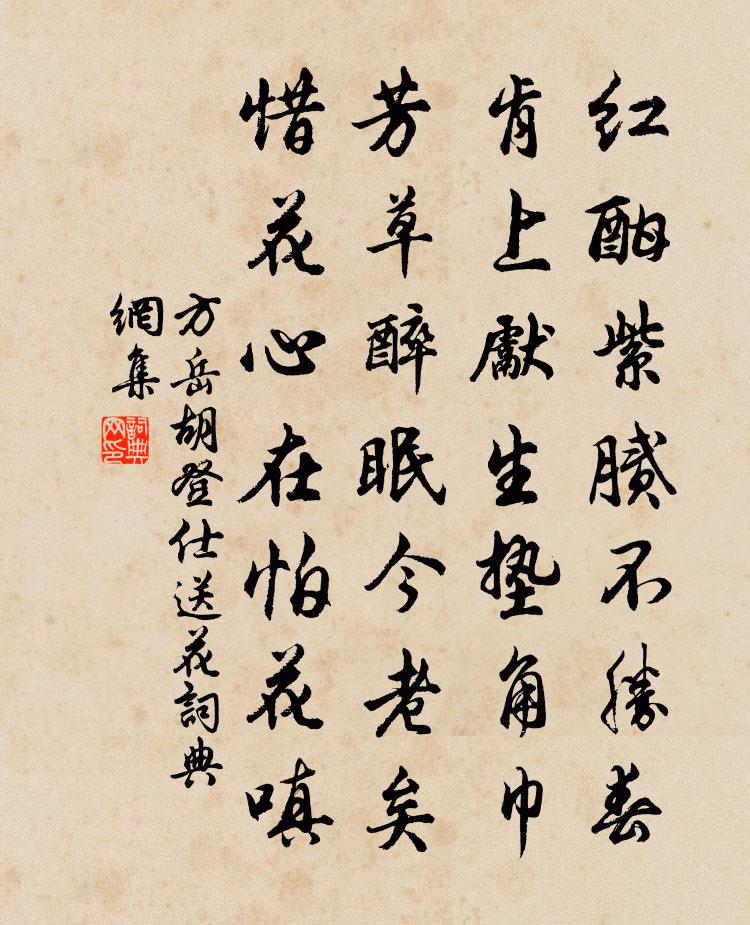 红酣紫膩不勝春
肯上獻生墊角巾
芳草醉眠今老矣
惜花心在怕花嗔
方岳胡登仕送花詞典
網集
詞典
网印